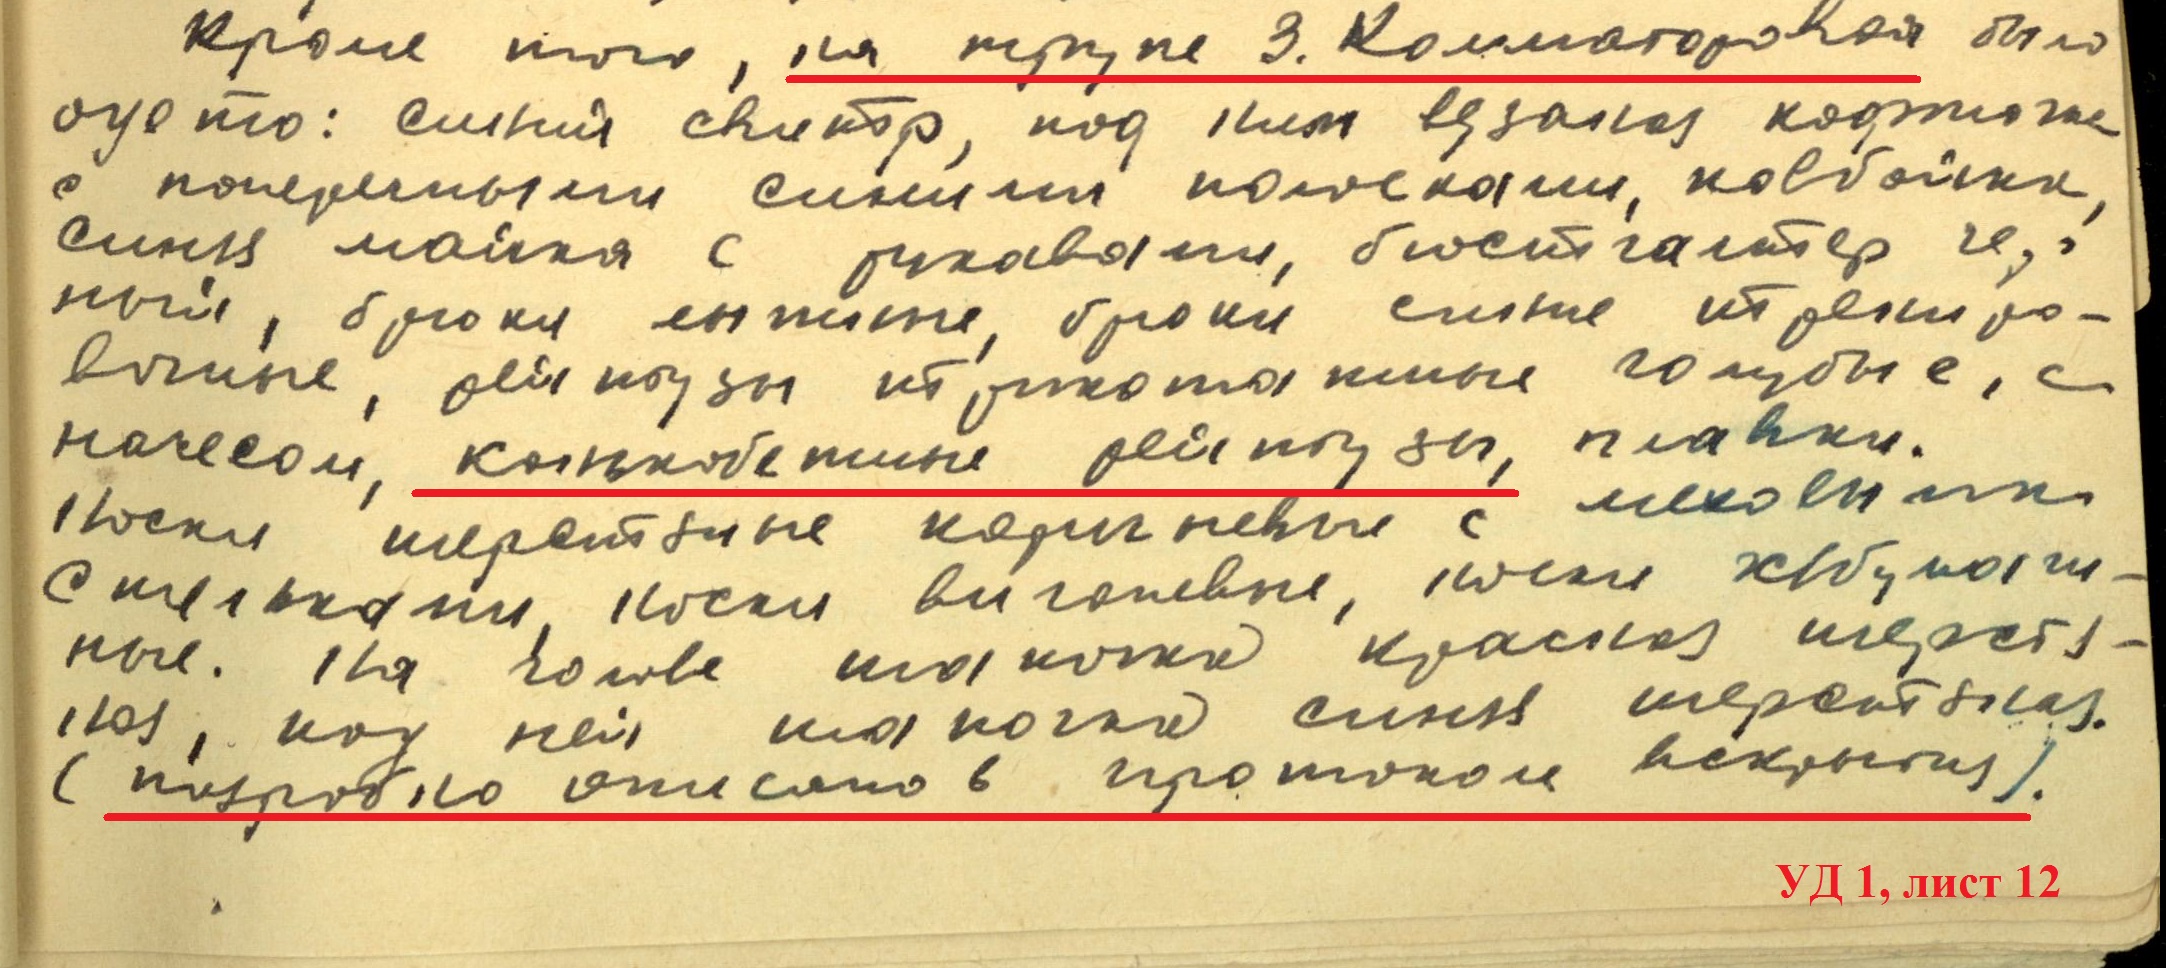 Кроме того, на трупе З. Колмогоровой было
одето: синий свитер, под ним вязаная кофточка
с поперечными синими полосками, ковбойка,
синяя майка с рукавами, бюстгалтер чер
ный, брюки лыжные, брюки синие трениро-
вочные, рейтузы трикотажные голубые, с
начесом, конькобежные рейтузы, плавки.
Носки шерстяные коричневые с меховыми
стельками, носки вигоневые, носки х/бумаж-
ные. На голове шапочка красная шерстя-
ная, под ней шапочка синяя шерстяная.
(подробно описано в протоколе вскрытия).
УД 1, лист 12